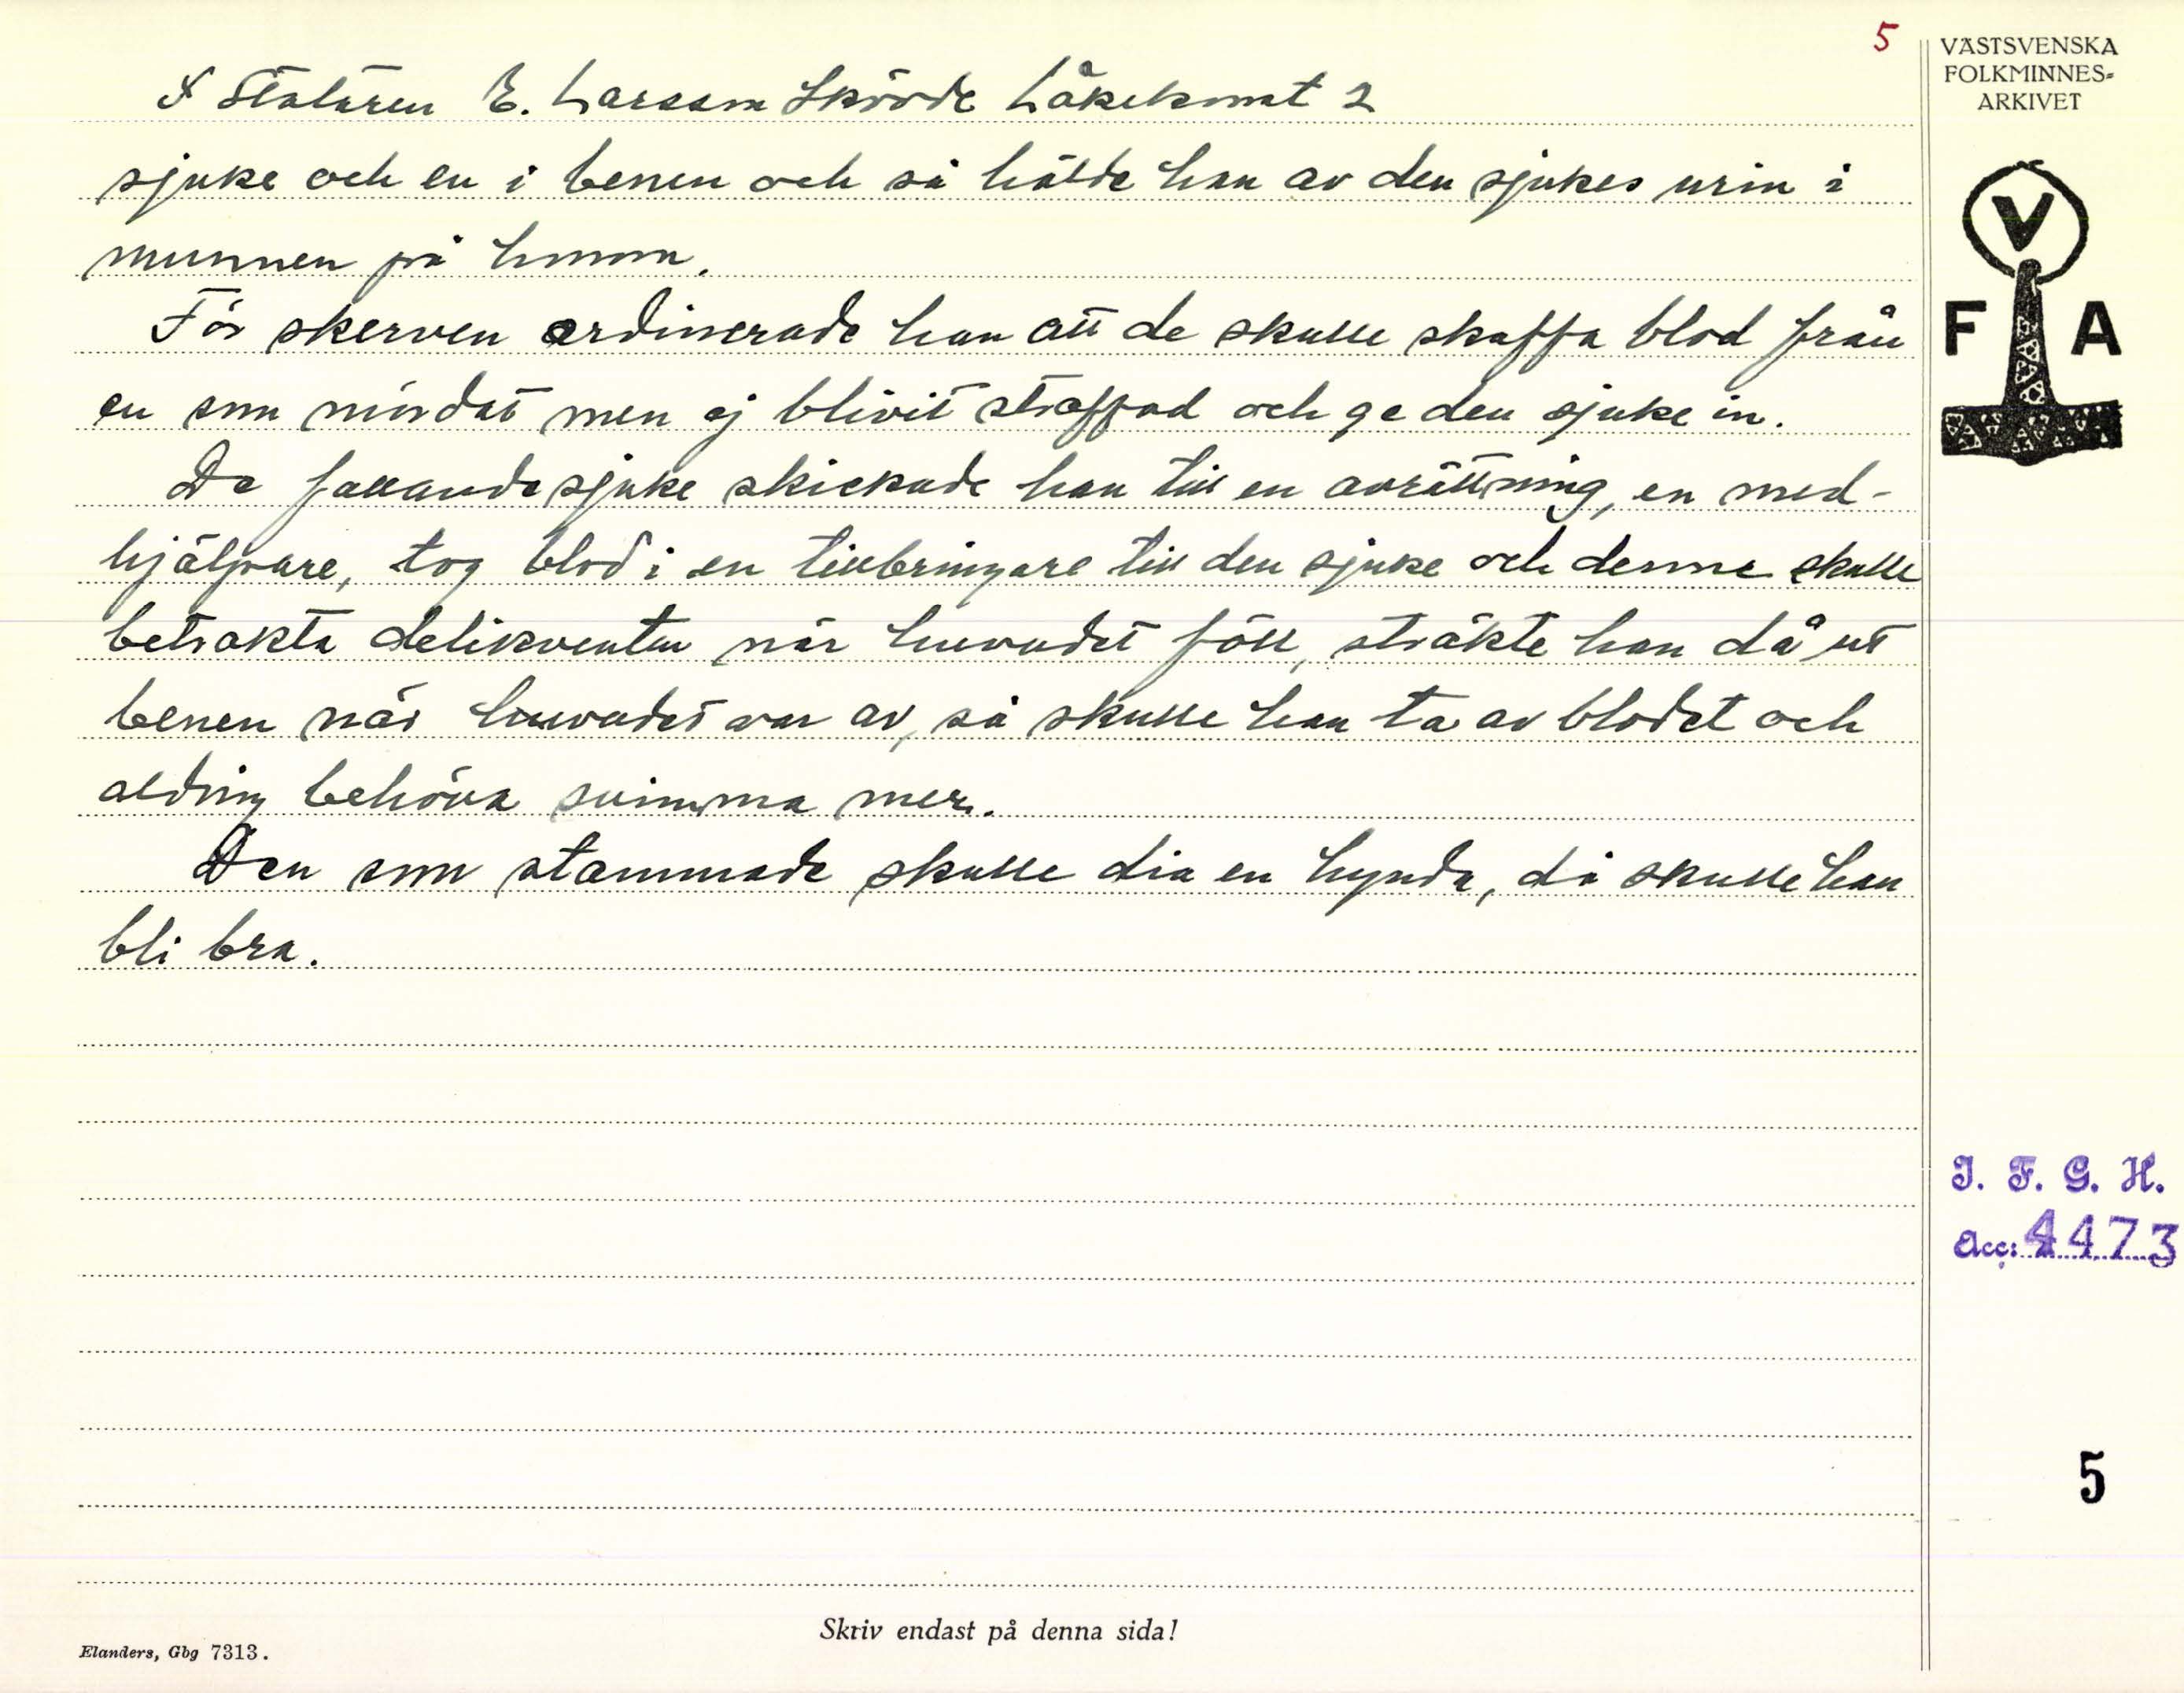 5
F. Stataren E. Larsson Skövde Läkekonst 2
sjuke och en i benen och så hälde han av den sjukes urin i
munnen på honom.
För skerven ordinerade han att de skulle skaffa blod från
en som mördat men ej blivit straffad och ge den sjuke in.
De fallandesjuke skickade han till en avrättning, en med-
hjälpare, tog blod i en tillbringare till den sjuke och denne skulle
betrakta delikventen när huvudet föll, sträkte han då ut
benen när huvudet var av, så skulle han ta av blodet och
aldrig behöva svimma mer.
Den som stammade skulle dia en hynda, då skulle han
bli bra.
VÄSTSVENSKA
FOLKMINNES-
ARKIVET
V
F A
I. F. G. H.
Acc: 4473
5
Skriv endast på denna sida!
Elanders, Gbg 7313.